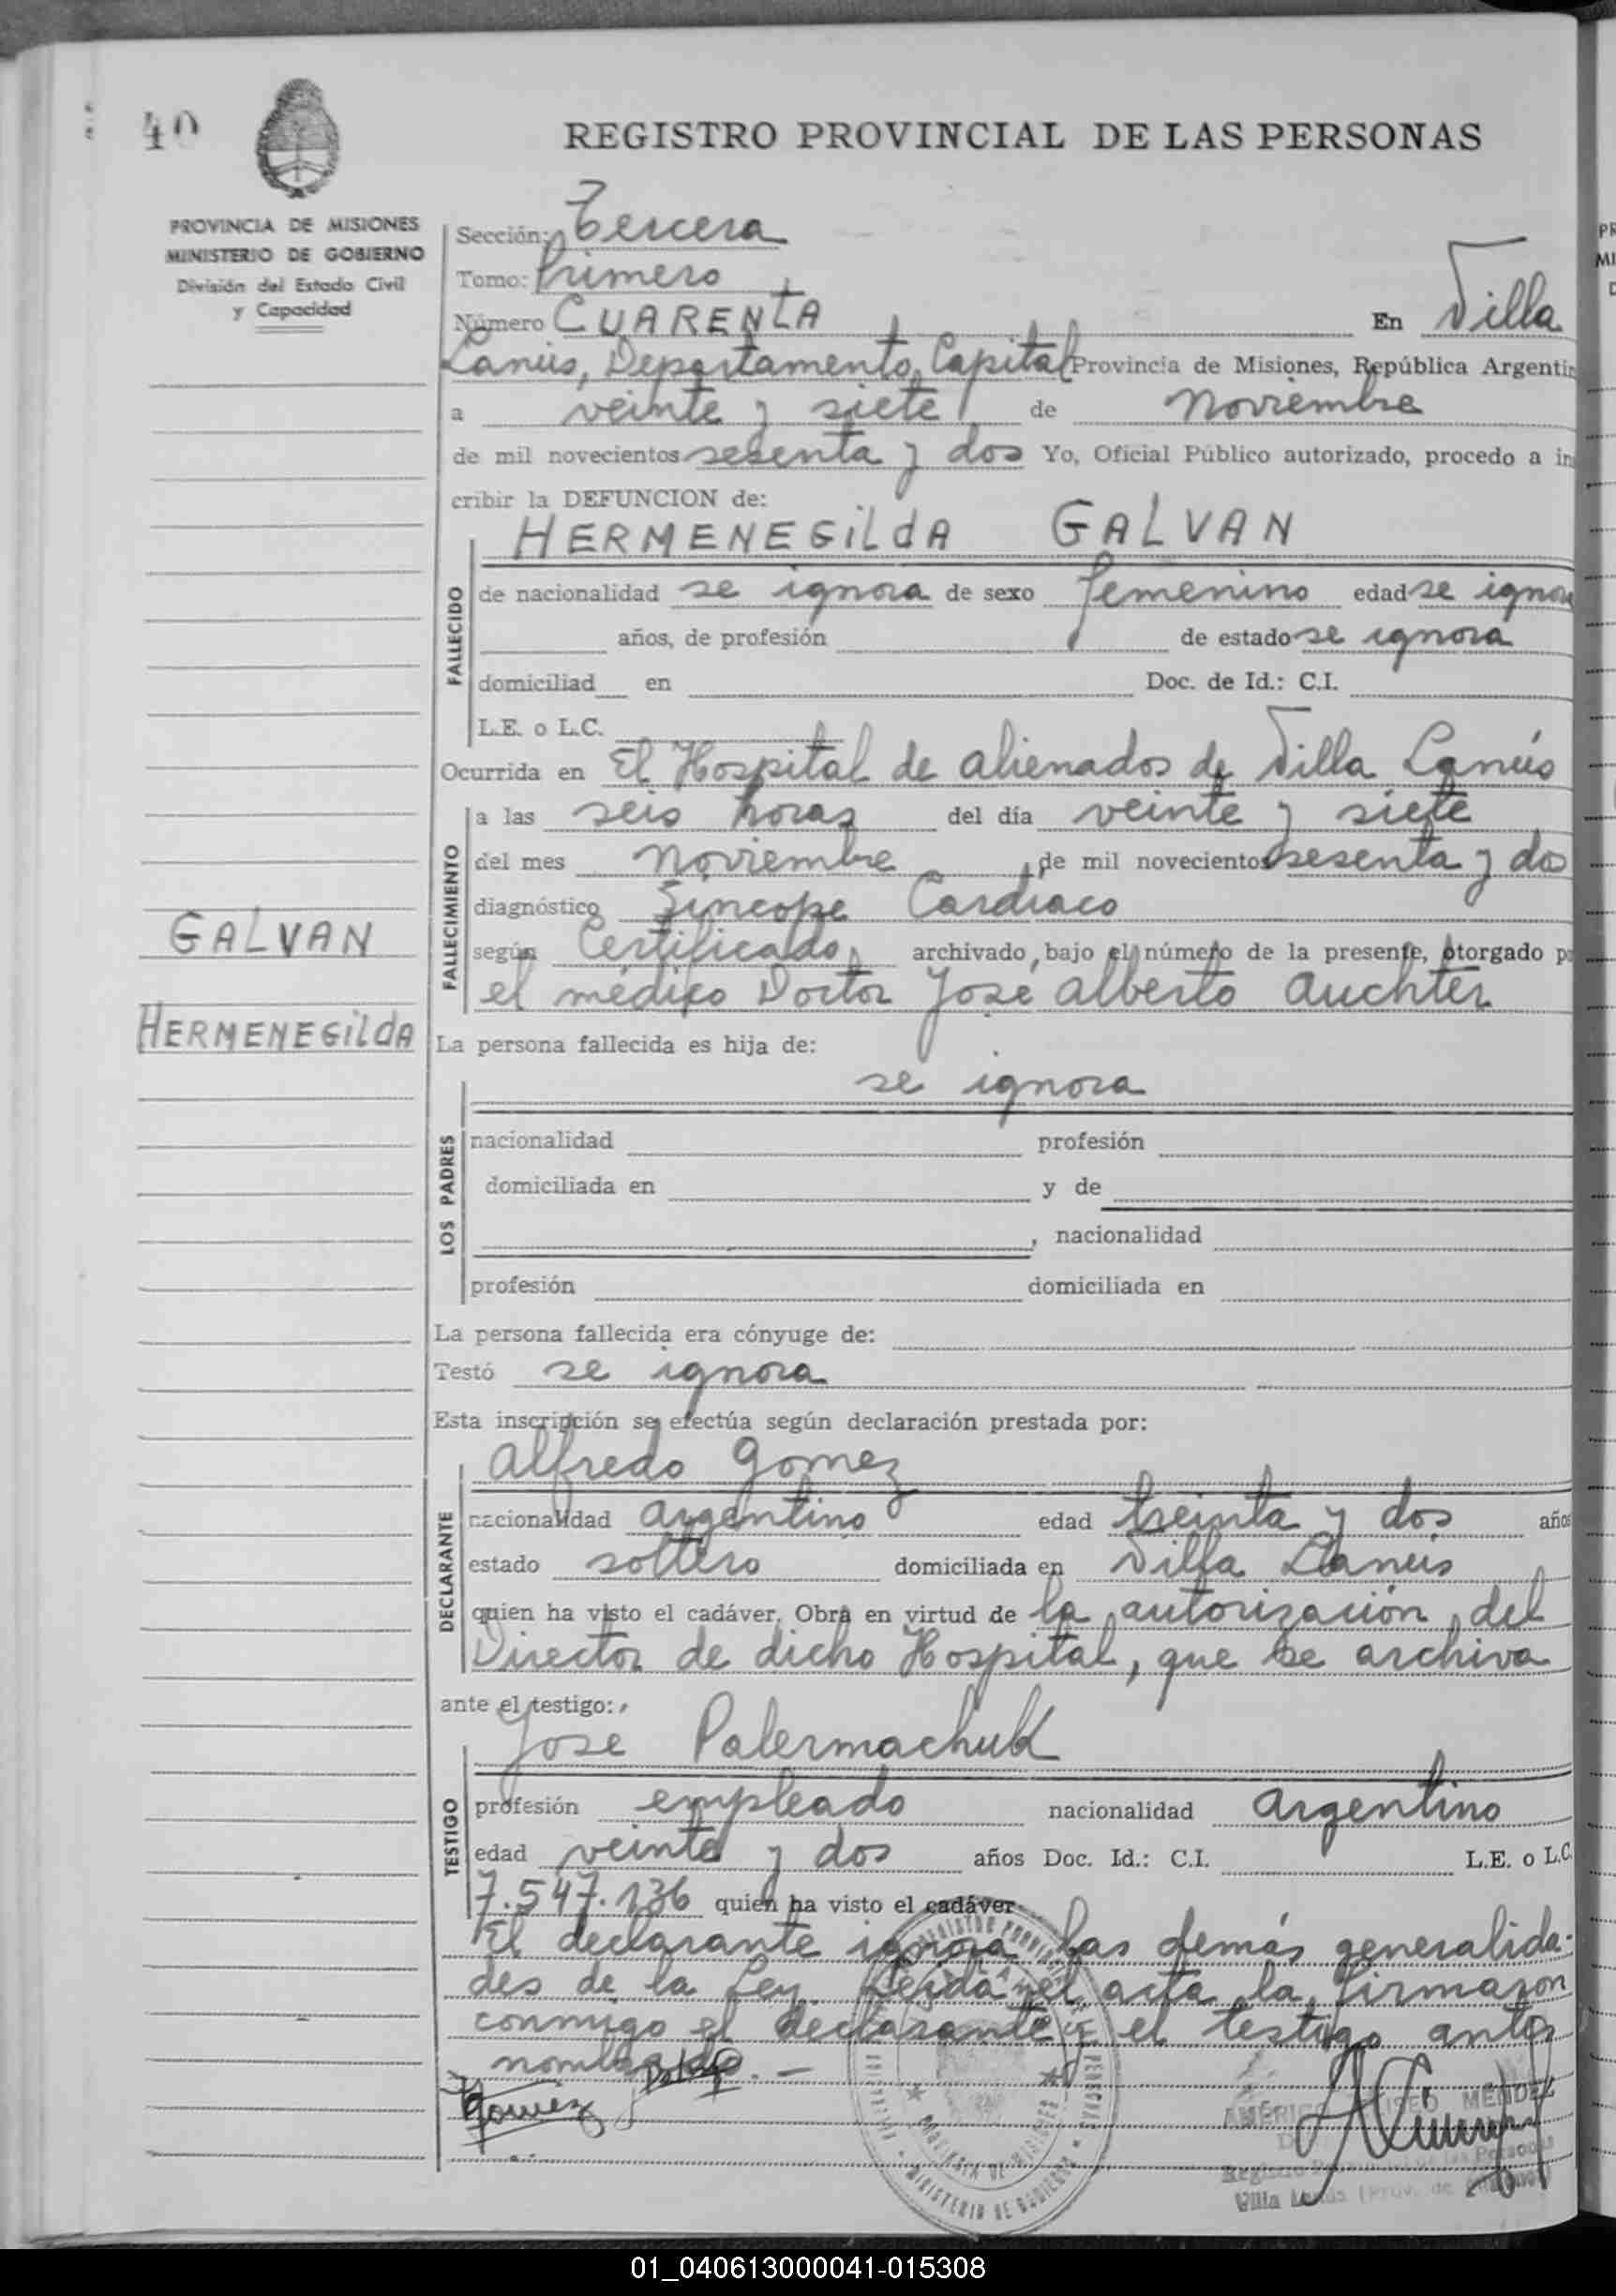 40
REGISTRO PROVINCIAL DE LAS PERSONAS
PROVINCIA DE MISIONES
MINISTERIO DE GOBIERNO
División del Estado Civil
y Capacidad
Sección: Tercera
Tomo: Primero
Número CUARENTA En Villa
Lanús, Departamento Capital Provincia de Misiones, República Argentin
a veinte y siete de Noviembre
de mil novecientos sesenta y dos Yo, Oficial Público autorizado, procedo a in
cribir la DEFUNCION de:
HERMENEGILdA GALVAN
FALLECIDO
de nacionalidad se ignora de sexo femenino edad se ignora
años, de profesión de estado se ignora
domiciliad en Doc. de Id.: C.I.
L.E. o L.C.
Ocurrida en El Hospital de alienados de Villa Lanús
FALLECIMIENTO
a las seis horas del día veinte y siete
del mes Noviembre de mil novecientos sesenta y dos
diagnóstico Síncope Cardiaco
según Certificado archivado bajo el número de la presente, otorgado p
el médico Doctor José Alberto Auchter
GALVAN
HERMENEGILdA
La persona fallecida es hija de:
se ignora
LOS PADRES
nacionalidad profesión
domiciliada en y de
, nacionalidad
profesión domiciliada en
La persona fallecida era cónyuge de:
Testó se ignora
Esta inscripción se efectúa según declaración prestada por:
Alfredo Gomez
DECLARANTE
nacionalidad argentino edad treinta y dos años
estado soltero domiciliada en Villa Lanús
quien ha visto el cadáver. Obra en virtud de la autorización del
Director de dicho Hospital, que se archiva
ante el testigo:
José Palermachuk
TESTIGO
profesión empleado nacionalidad argentino
edad veinte y dos años Doc. Id.: C.I. L.E. o L.C.
7.547.136 quien ha visto el cadáver
El declarante ignora las demás generalida-
des de la Ley. Leída el acta la firmaron
conmigo el declarante y el testigo antes
nombrado. —
Gomez
REGISTRO PROVINCIAL DE LAS PERSONAS
PROVINCIA DE MISIONES
MINISTERIO DE GOBIERNO
AMÉRICO ELISEO MENDEZ
Registro Provincial de las Personas
Villa Lanús (Prov. de Misiones)
01_040613000041-015308